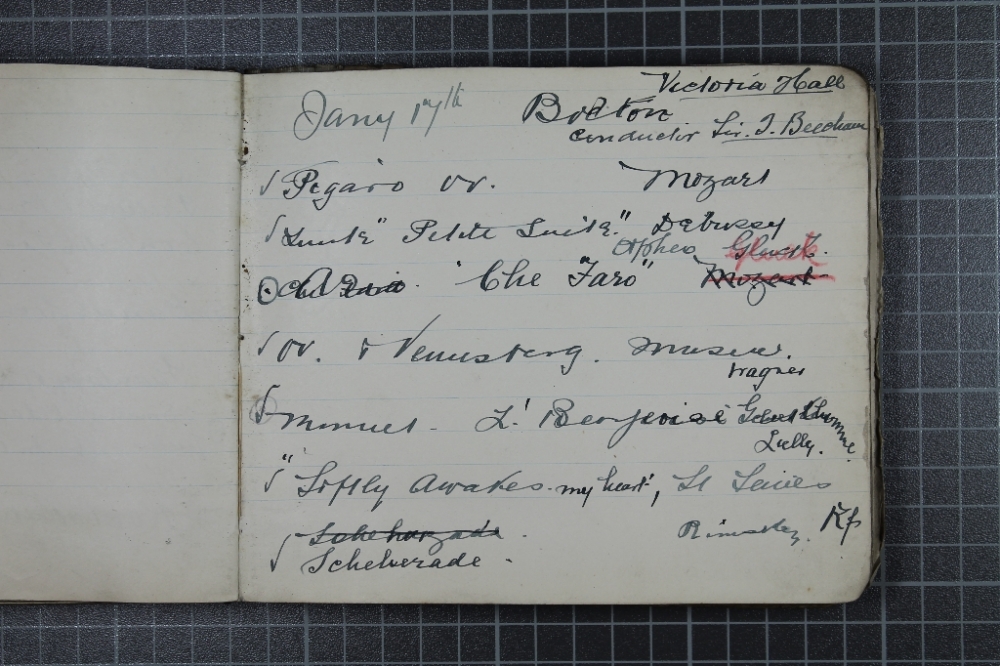 Victoria Hall
Jany 17th Bolton
Conductor Sir. T. Beecham
Figaro ov. Mozart
Suite" Petite Suite." Debussy
Orpheo Gluck. Gluck
Aria "Che Faro" Mozart
ov. & Venusberg. Music.
Wagner
Minuet - L'
Lully.
"Softly Awakes my heart", St Seines
Scheherzade. Rimsky. Kf
Scheherade -